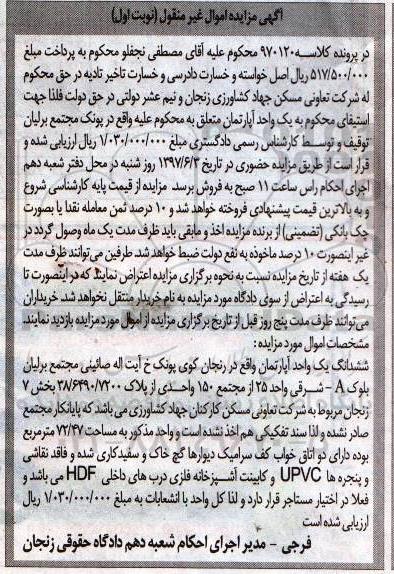 آگهی مزایده اموال غیر منقول (نوبت اول)
در پرونده کلاسه ۹۷۰۱۲۰ محکوم علیه آقای مصطفی نجفلو محکوم به پرداخت مبلغ
۵۱۷/۵۰۰/۰۰۰ ریال اصل خواسته و خسارت دادرسی و خسارت تاخیر تادیه در حق محکوم
له شرکت تعاونی مسکن جهاد کشاورزی زنجان و نیم عشر دولتی در حق دولت فلذا جهت
استیفای محکوم به یک واحد آپارتمان متعلق به محکوم علیه واقع در پونک مجتمع برلیان
توقیف و توسط کارشناس رسمی دادگستری مبلغ ۱/۰۳۰/۰۰۰/۰۰۰ ریال ارزیابی شده و
قرار است از طریق مزایده حضوری در تاریخ ۱۳۹۷/۶/۳ روز شنبه در محل دفتر شعبه دهم
اجرای احکام راس ساعت ۱۱ صبح به فروش برسد. مزایده از قیمت پایه کارشناسی شروع
و به بالاترین قیمت پیشنهادی فروخته خواهد شد و ۱۰ درصد ثمن معامله نقدا یا بصورت
چک بانکی (تضمینی) از برنده مزایده اخذ و مابقی باید ظرف مدت یک ماه وصول گردد در
غیر اینصورت ۱۰ درصد ماخوذه به نفع دولت ضبط خواهد شد. طرفین می‌توانند ظرف مدت
یک هفته از تاریخ مزایده نسبت به نحوه برگزاری مزایده اعتراض نمایند که در اینصورت تا
رسیدگی به اعتراض از سوی دادگاه مورد مزایده به نام خریدار منتقل نخواهد شد. خریداران
می‌توانند ظرف مدت پنج روز قبل از تاریخ برگزاری مزایده از اموال مورد مزایده بازدید نمایند.
مشخصات اموال مورد مزایده:
ششدانگ یک واحد آپارتمان واقع در زنجان کوی پونک خ آیت اله صائینی مجتمع برلیان
بلوک A - شرقی واحد ۲۵ از مجتمع ۱۵۰ واحدی از پلاک ۳۸/۶۴۹۰/۷۲۰۰ بخش ۷
زنجان مربوط به شرکت تعاونی مسکن کارکنان جهاد کشاورزی می باشد که پایانکار مجتمع
صادر نشده و لذا سند تفکیکی هم اخذ نشده است و واحد مذکور به مساحت ۷۲/۴۷ مترمربع
بوده دارای دو اتاق خواب کف سرامیک دیوارها گچ خاک و سفیدکاری شده و فاقد نقاشی
و پنجره ها UPVC و کابینت آشپزخانه فلزی درب های داخلی HDF می باشد و
فعلا در اختیار مستاجر قرار دارد و لذا کل واحد با انشعابات به مبلغ ۱/۰۳۰/۰۰۰/۰۰۰ ریال
ارزیابی شده است
فرجی - مدیر اجرای احکام شعبه دهم دادگاه حقوقی زنجان